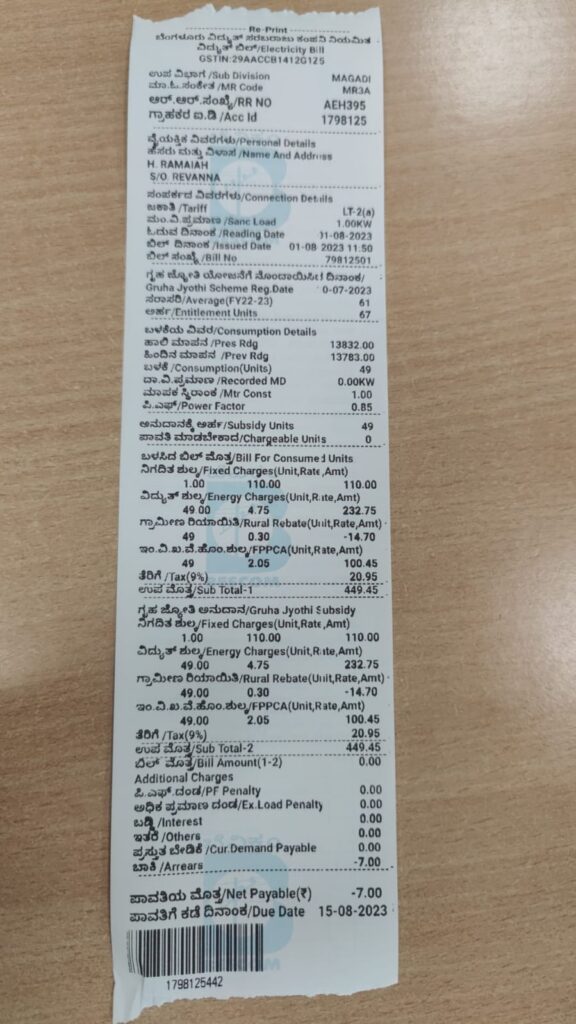 Re-Print
ಬೆಂಗಳೂರು ವಿದ್ಯುತ್ ಸರಬರಾಜು ಕಂಪನಿ ನಿಯಮಿತ
ವಿದ್ಯುತ್ ಬಿಲ್/Electricity Bill
GSTIN:29AACCB1412G1Z5
ಉಪ ವಿಭಾಗ /Sub Division MAGADI
ಮಾ.ಓ.ಸಂಕೇತ /MR Code MR3A
ಆರ್.ಆರ್.ಸಂಖ್ಯೆ/RR NO AEH395
ಗ್ರಾಹಕರ ಐ.ಡಿ /Acc Id 1798125
ವೈಯಕ್ತಿಕ ವಿವರಗಳು/Personal Details
ಹೆಸರು ಮತ್ತು ವಿಳಾಸ /Name And Address
H. RAMAIAH
S/O. REVANNA
ಸಂಪರ್ಕದ ವಿವರಗಳು/Connection Details
ಜಕಾತಿ /Tariff LT-2(a)
ಮಂ.ವಿ.ಪ್ರಮಾಣ /Sanc Load 1.00KW
ಓದುವ ದಿನಾಂಕ /Reading Date 01-08-2023
ಬಿಲ್ ದಿನಾಂಕ /Issued Date 01-08-2023 11:50
ಬಿಲ್ ಸಂಖ್ಯೆ /Bill No 79812501
ಗೃಹ ಜ್ಯೋತಿ ಯೋಜನೆಗೆ ನೊಂದಾಯಿಸಿದ ದಿನಾಂಕ/
Gruha Jyothi Scheme Reg.Date 0-07-2023
ಸರಾಸರಿ/Average(FY22-23) 61
ಅರ್ಹ/Entitlement Units 67
ಬಳಕೆಯ ವಿವರ/Consumption Details
ಹಾಲಿ ಮಾಪನ /Pres Rdg 13832.00
ಹಿಂದಿನ ಮಾಪನ /Prev Rdg 13783.00
ಬಳಕೆ /Consumption(Units) 49
ದಾ.ವಿ.ಪ್ರಮಾಣ /Recorded MD 0.00KW
ಮಾಪಕ ಸ್ಥಿರಾಂಕ /Mtr Const 1.00
ಪಿ.ಎಫ್/Power Factor 0.85
ಅನುದಾನಕ್ಕೆ ಅರ್ಹ/Subsidy Units 49
ಪಾವತಿ ಮಾಡಬೇಕಾದ/Chargeable Units 0
ಬಳಸಿದ ಬಿಲ್ ಮೊತ್ತ/Bill For Consumed Units
ನಿಗದಿತ ಶುಲ್ಕ/Fixed Charges(Unit,Rate,Amt)
1.00 110.00 110.00
ವಿದ್ಯುತ್ ಶುಲ್ಕ/Energy Charges(Unit,Rate,Amt)
49.00 4.75 232.75
ಗ್ರಾಮೀಣ ರಿಯಾಯಿತಿ/Rural Rebate(Unit,Rate,Amt)
49 0.30 -14.70
ಇಂ.ವಿ.ಖ.ವೆ.ಹೊಂ.ಶುಲ್ಕ/FPPCA(Unit,Rate,Amt)
49 2.05 100.45
ತೆರಿಗೆ /Tax(9%) 20.95
ಉಪ ಮೊತ್ತ/Sub Total-1 449.45
ಗೃಹ ಜ್ಯೋತಿ ಅನುದಾನ/Gruha Jyothi Subsidy
ನಿಗದಿತ ಶುಲ್ಕ/Fixed Charges(Unit,Rate,Amt)
1.00 110.00 110.00
ವಿದ್ಯುತ್ ಶುಲ್ಕ/Energy Charges(Unit,Rate,Amt)
49.00 4.75 232.75
ಗ್ರಾಮೀಣ ರಿಯಾಯಿತಿ/Rural Rebate(Unit,Rate,Amt)
49.00 0.30 -14.70
ಇಂ.ವಿ.ಖ.ವೆ.ಹೊಂ.ಶುಲ್ಕ/FPPCA(Unit,Rate,Amt)
49.00 2.05 100.45
ತೆರಿಗೆ /Tax(9%) 20.95
ಉಪ ಮೊತ್ತ/Sub Total-2 449.45
ಬಿಲ್ ಮೊತ್ತ/Bill Amount(1-2) 0.00
Additional Charges
ಪಿ.ಎಫ್.ದಂಡ/PF Penalty 0.00
ಅಧಿಕ ಪ್ರಮಾಣ ದಂಡ/Ex.Load Penalty 0.00
ಬಡ್ಡಿ /Interest 0.00
ಇತರೆ /Others 0.00
ಪ್ರಸ್ತುತ ಬೇಡಿಕೆ /Cur.Demand Payable 0.00
ಬಾಕಿ /Arrears -7.00
ಪಾವತಿಯ ಮೊತ್ತ/Net Payable(₹) -7.00
ಪಾವತಿಗೆ ಕಡೆ ದಿನಾಂಕ/Due Date 15-08-2023
1798125442